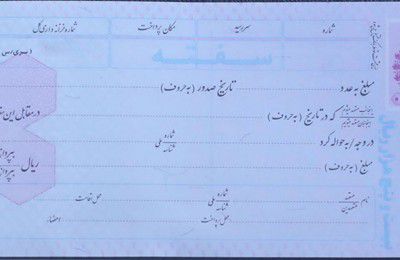 شماره سررسید مکان پرداخت شماره خزانه داری کل
سفته
مبلغ به عدد تاریخ صدور (به حروف)
که در تاریخ (به حروف) در مقابل این
در وجه / به حواله کرد شماره ملی شناسه
مبلغ (به حروف) ریال
نام متعهد متعهدین شماره ملی شناسه محل اقامت
محل پرداخت امضاء:
بیست و پنج هزار ریال